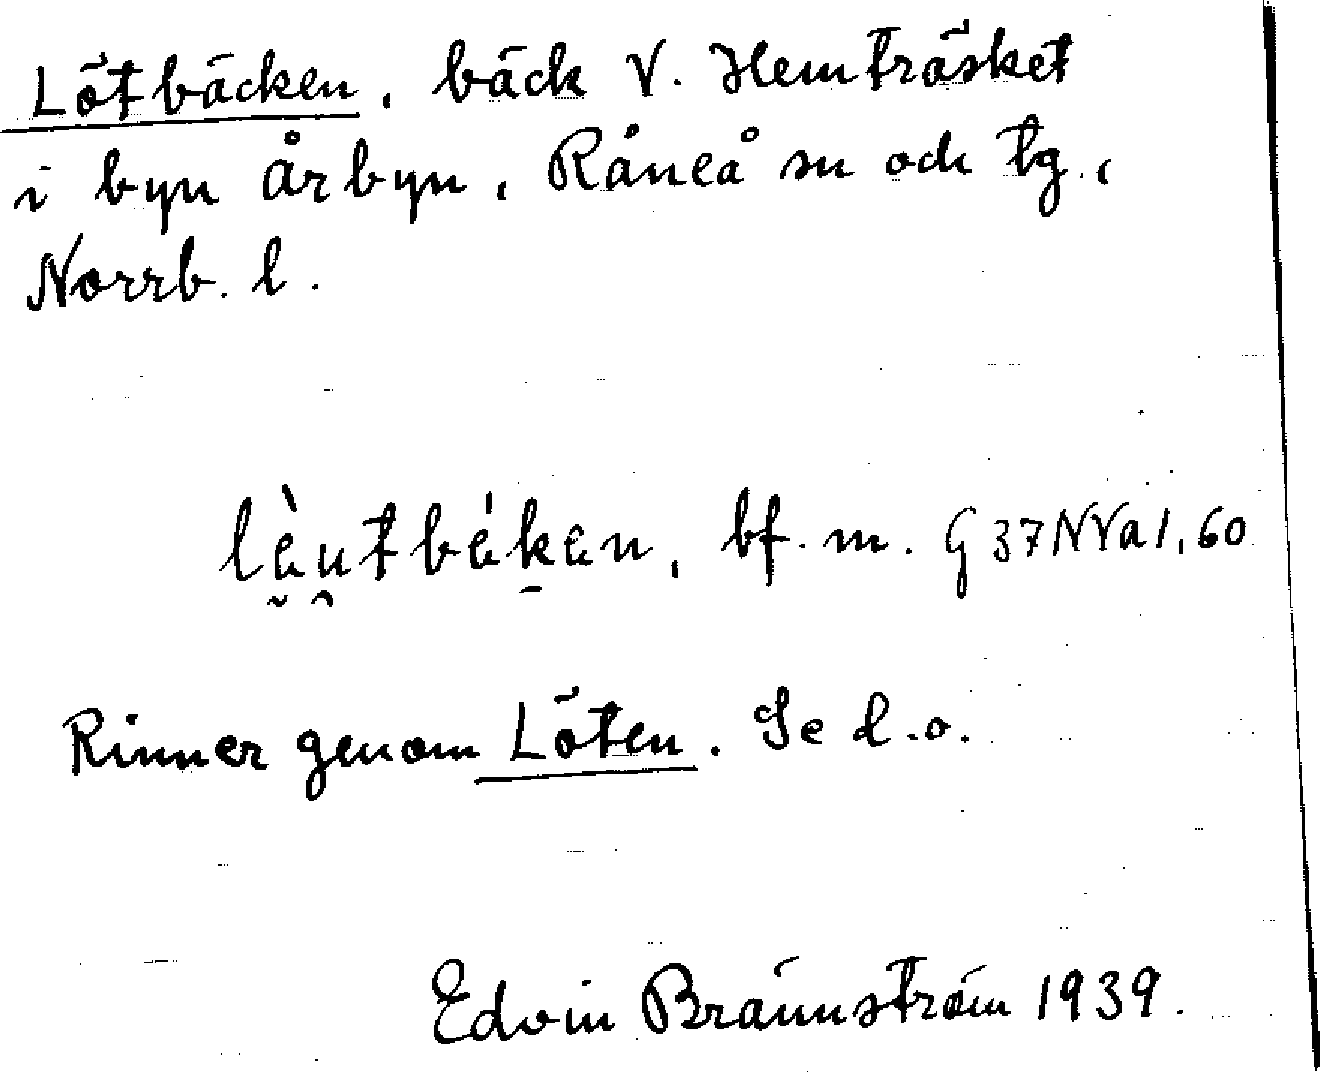 Lötbäcken, bäck V. Hemträsket
i byn Årbyn, Råneå sn och tg.,
Norrb. l.
lèutbéken, bf. m. G 37 NVa 1, 60
Rinner genom Löten. Se d. o.
Edvin Brännström 1939.